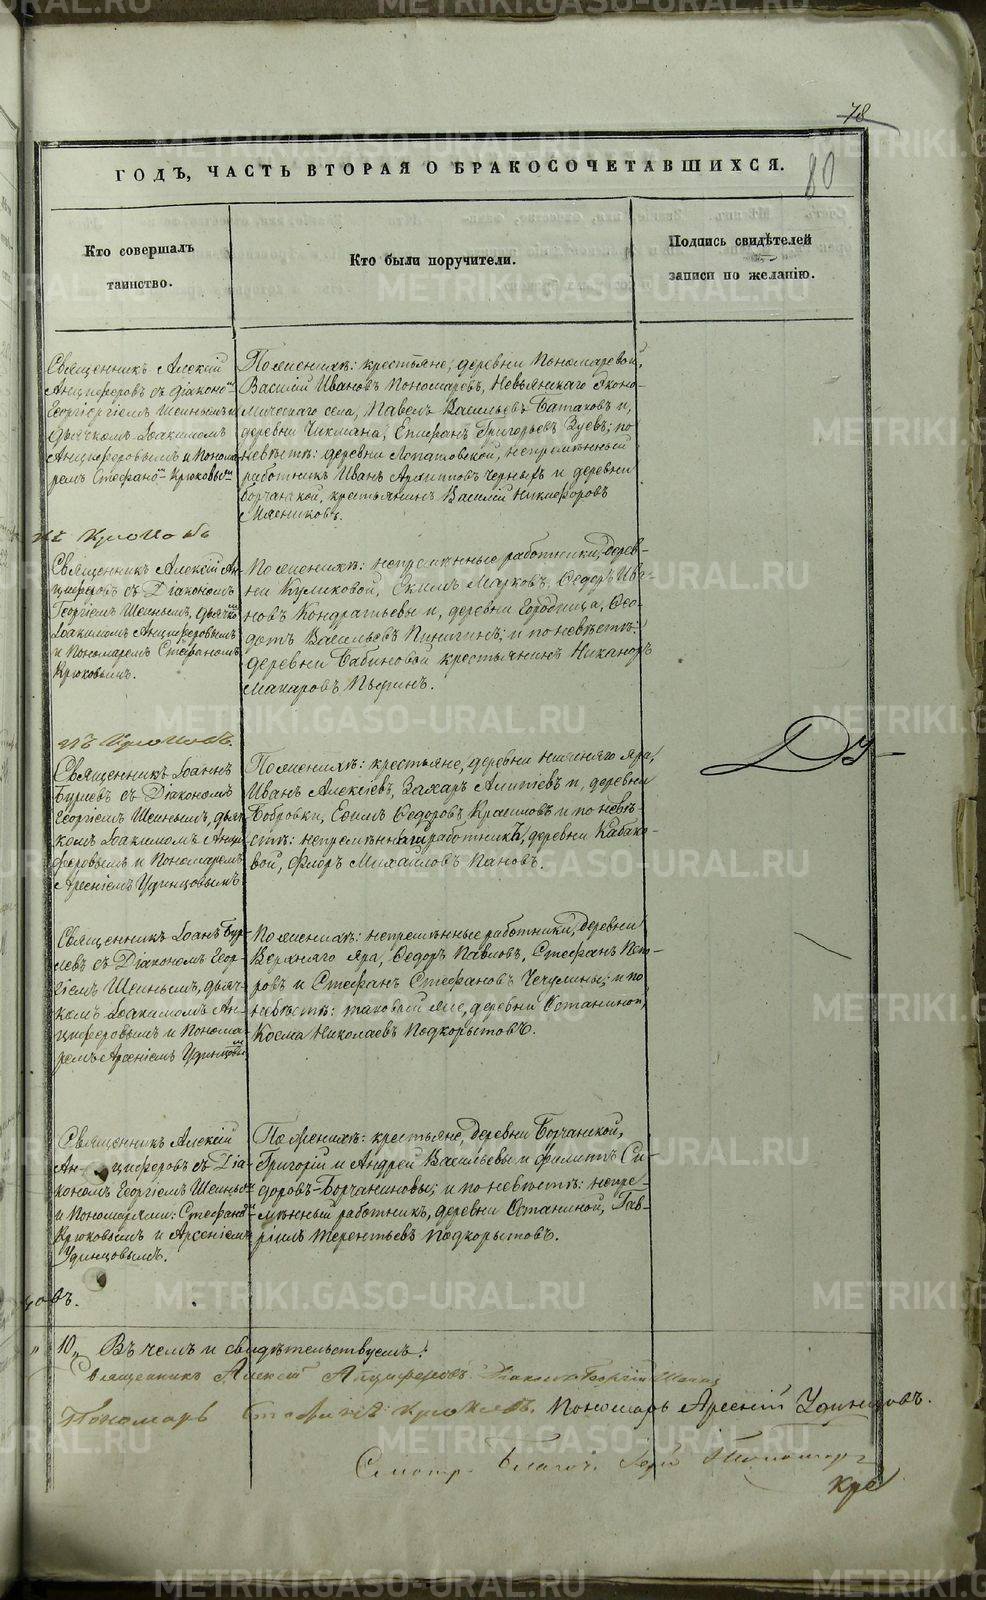 78
80
ГОДЪ, ЧАСТЬ ВТОРАЯ О БРАКОСОЧЕТАВШИХСЯ.
Кто совершалъ
таинство.
Кто были поручители.
Подпись свидѣтелей
записи по желанію.
Священникъ Алексій
Анциферовъ съ діаконо-
Георгіемъ Шеинымъ и
дьячкомъ Іоакимомъ
Анциферовымъ и Понома-
ремъ Стефано- Крюковы-
По женихѣ: крестьяне, деревни Пономаревой,
Василій Ивановъ Пономаревъ, Невьянскаго Эконо-
мическаго села, Павелъ Васильевъ Батаковъ и,
деревни Чикмана, Епифанъ Григорьевъ Зуевъ; по
невѣстѣ: деревни Лопатовской, непремѣнный
работникъ Иванъ Архиповъ Черныхъ и деревни
Борчанской, крестьянинъ Василій Никифоровъ
Мясниковъ.
Священникъ Алексій Ан-
циферовъ съ Діакономъ
Георгіемъ Шеинымъ, дьячко-
Іоакимомъ Анциферовымъ
и Пономаремъ Стефаномъ
Крюковымъ.
По женихѣ: непремѣнные работники, дерев-
ни Куликовой, Екимъ Марковъ, Ѳедоръ Ива-
новъ Кондратьевы и, деревни Городища, Ѳео-
дотъ Васильевъ Пинигинъ; и по невѣстѣ:
деревни Бабиновой крестьянинъ Никаноръ
Макаровъ Пьянкинъ.
Священникъ Іоаннъ
Бирюковъ съ Діакономъ
Георгіемъ Шеинымъ, дьяч-
комъ Іоакимомъ Анци-
феровымъ и Пономаремъ
Арсеніемъ Удинцовымъ
По женихѣ: крестьяне, деревни Нижняго Яра,
Иванъ Алексіевъ, Захаръ Алипіевъ и, деревни
Бобровки, Ефимъ Ѳедоровъ Крашновъ и по невѣ-
стѣ: непремѣнный работникъ, деревни Кабако-
вой, Флоръ Михайловъ Пановъ.
Священникъ Іоанъ Бур-
левъ съ Діакономъ Геор-
гіемъ Шеинымъ, дьяч-
комъ Іоакимомъ Ан-
циферовымъ и Понома-
ремъ Арсеніемъ Удинцовы-
По женихѣ: непремѣнные работники, деревни
Верхняго Яра, Ѳедоръ Павловъ, Стефанъ Пет-
ровъ и Стефанъ Стефановъ Чечулины; и по
невѣстѣ: таковой же, деревни Останиной,
Косма Николаевъ Подкорытовъ.
Священникъ Алексій
Анциферовъ съ Діа-
кономъ Георгіемъ Шеины-
и Пономарями: Стефано-
Крюковымъ и Арсеніемъ
Удинцовымъ.
По женихѣ: крестьяне, деревни Борчанской,
Григорій и Андрей Васильевы и Филатъ Си-
доровъ Борчаниновы; и по невѣстѣ: непре-
мѣнный работникъ, деревни Останиной, Гав-
ріилъ Терентьевъ Подкорытовъ.
цовъ.
10, Въ чемъ и свидѣтельствуемъ:
Священникъ Алексій Анциферовъ Діаконъ Георгій Шеинъ
Пономарь Стефанъ Крюковъ. Пономарь Арсеній Удинцовъ.
Смотр. Благоч.